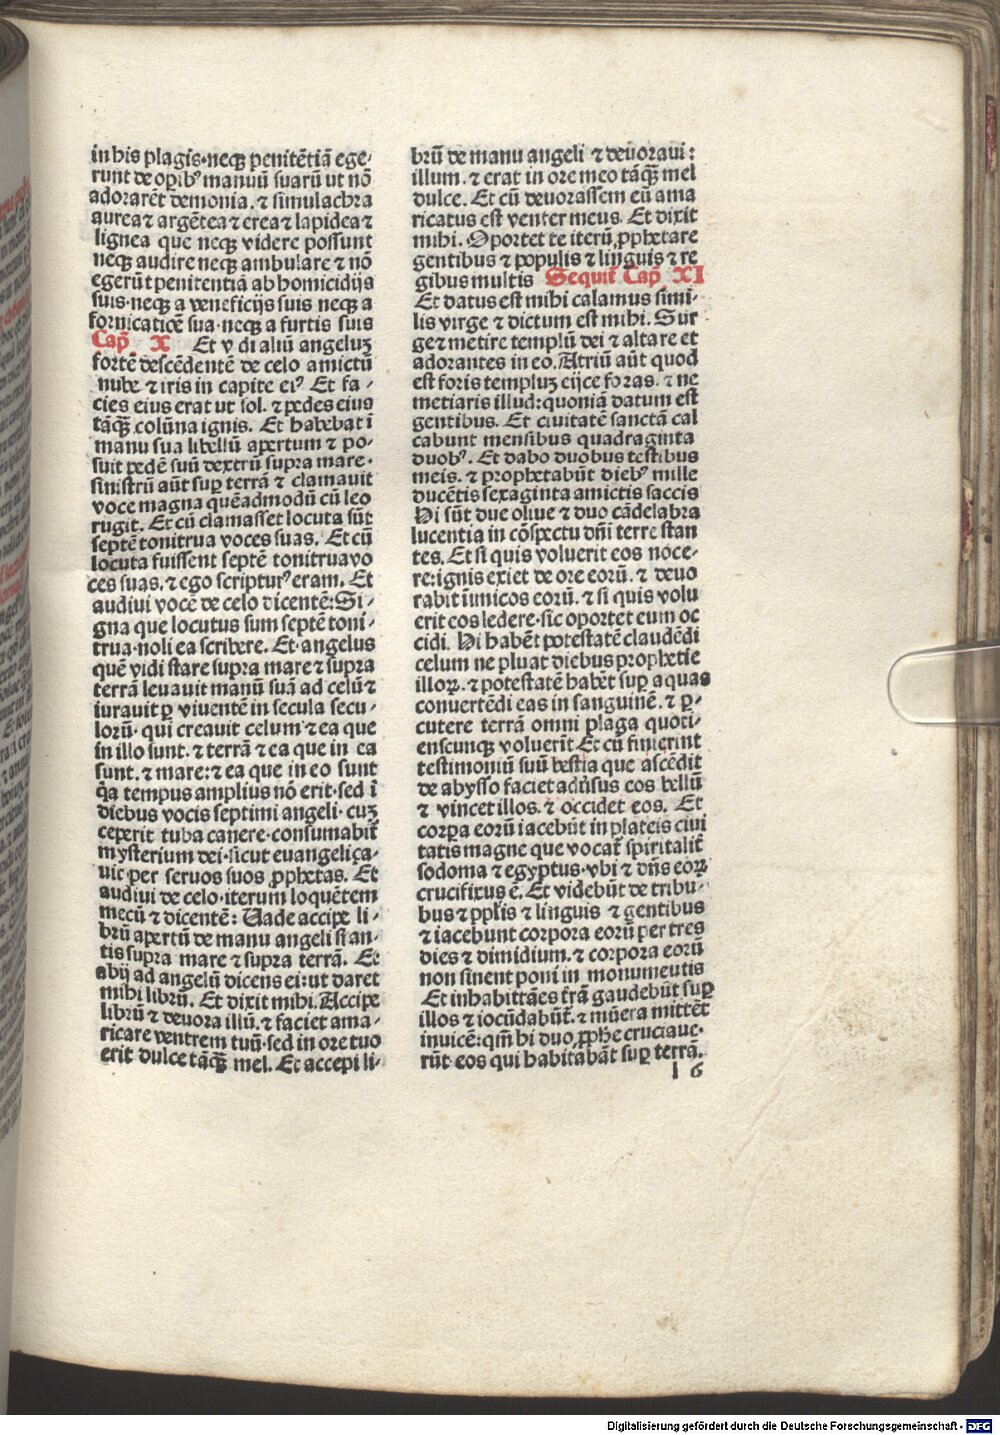 in his plagis·neqꝫ penitētiā ege⸗
runt de oꝑibꝰ manuū suarū ut nō
adorarēt demonia. ⁊ simulachra
aurea ⁊ argētea ⁊ erea ⁊ lapidea ⁊
lignea que neqꝫ videre possunt
neqꝫ audire neqꝫ ambulare ⁊ nō
egerūt penitentiā ab homicidijs
suis·neqꝫ a veneficijs suis neqꝫ a
fornicatiōe sua·neqꝫ a furtis suis
Cap̄ X Et v di aliū angeluꝫ
fortē descēdentē de celo amictū
nube ⁊ iris in capite eiꝰ Et fa⸗
cies eius erat ut sol. ⁊ pedes eius
tāꝗꝫ colūna ignis. Et habebat ī
manu sua libellū apertum ⁊ po⸗
suit pedē suū dextrū supra mare·
sinistrū aūt suꝑ terrā ⁊ clamauit
voce magna quēadmodū cū leo
rugit. Et cū clamasset locuta sūt
septē tonitrua voces suas. Et cū
locuta fuissent septē tonitruavo
ces suas. ⁊ ego scripturꝰ eram. Et
audiui vocē de celo dicentē: Si⸗
gna que locutus sum septē toni⸗
trua·noli ea scribere. Et angelus
quē vidi stare supra mare ⁊ supra
terrā leuauit manū suā ad celū ⁊
iurauit ꝑ viventē in secula secu⸗
lorū· qui creauit celum ⁊ ea que
in illo sunt. ⁊ terrā ⁊ ea que in ea
sunt. ⁊ mare: ⁊ ea que in eo sunt
q̄a tempus amplius nō erit·sed ī
diebus vocis septimi angeli· cuꝫ
ceperit tuba canere·consumabit̄
mysterium dei·sicut euangeliça⸗
uit per seruos suos ꝓphetas. Et
audiui de celo·iterum loquētem
mecū ⁊ dicentē: Uade accipe li⸗
brū apertū de manu angeli stan⸗
tis supra mare ⁊ supra terrā. Et
abij ad angelū dicens ei: ut daret
mihi librū. Et dixit mihi. Accipe
librū ⁊ deuora illū. ⁊ faciet ama⸗
ricare ventrem tuū·sed in ore tuo
erit dulce tāꝗꝫ mel. Et accepi li⸗
brū de manu angeli ⁊ deuoraui:
illum. ⁊ erat in ore meo tāꝗꝫ mel
dulce. Et cū devorassem eū ama
ricatus est venter meus. Et dixit
mihi. Oportet te iterū ꝓphetare
gentibus ⁊ populis ⁊ linguis ⁊ re
gibus multis Sequit̄ Cap̄ XI
Et datus est mihi calamus simi⸗
lis virge ⁊ dictum est mihi. Sur
ge ⁊ metire templū dei ⁊ altare et
adorantes in eo. Atriū aūt quod
est foris templuꝫ eijce foras. ⁊ ne
metiaris illud: quoniā datum est
gentibus. Et ciuitatē sanctā cal
cabunt mensibus quadraginta
duobꝰ. Et dabo duobus testibus
meis. ⁊ prophetabūt diebꝰ mille
ducētis sexaginta amictis saccis
Hi sūt due oliue ⁊ duo cādelabra
lucentia in cōspectu dn̄i terre stan
tes. Et si quis voluerit eos noce⸗
re: ignis exiet de ore eorū. ⁊ deuo
rabit inimicos eorū. ⁊ si quis volu
erit eos ledere·sic oportet eum oc
cidi. Hi habēt potestatē claudēdi
celum ne pluat diebus prophetie
illoꝝ. ⁊ potestatē habēt suꝑ aquas
convertēdi eas in sanguinē. ⁊ ꝑ⸗
cutere terrā omni plaga quoti⸗
enscunqꝫ voluerīt Et cū finierint
testimoniū suū bestia que ascēdit
de abysso faciet adūsus eos bellū
⁊ vincet illos. ⁊ occidet eos. Et
corpa eorū iacebūt in plateis ciui
tatis magne que vocat̄ spiritalit̄
sodoma ⁊ egyptus·vbi ⁊ dn̄s eoꝝ
crucifixus ē. Et videbūt de tribu⸗
bus ⁊ pplis ⁊ linguis ⁊ gentibus
⁊ iacebunt corpora eorū per tres
dies ⁊ dimidium. ⁊ corpora eorū
non sinent poni in monumentis
Et inhabittāes t̄rā gaudebūt suꝑ
illos ⁊ iocūdabūt̄. ⁊ mūera mittēt
invicē: qm̄ hi duo ꝓphe cruciaue·
rūt eos qui habitabāt suꝑ terrā.
l 6
Digitalisierung gefördert durch die Deutsche Forschungsgemeinschaft - DFG